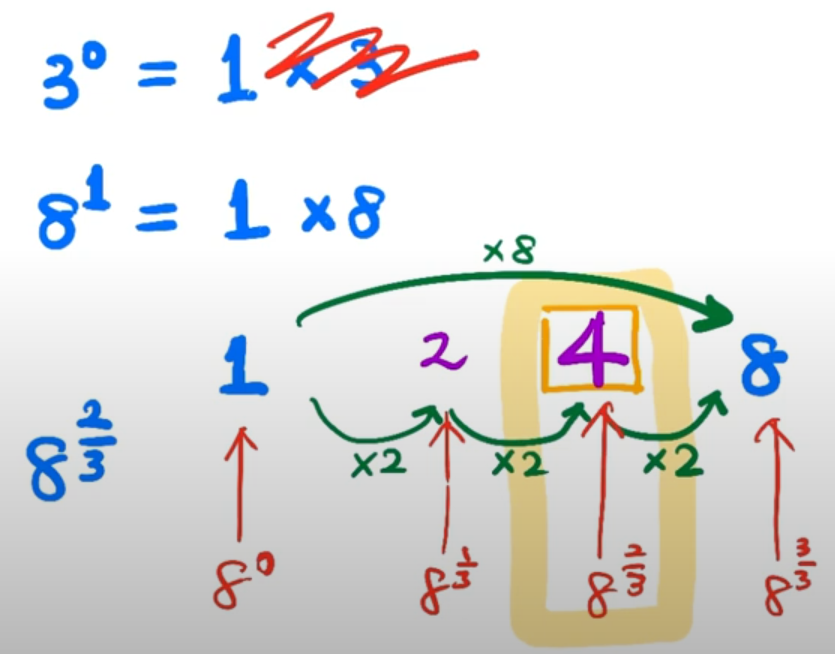 3⁰ = 1 × 3
8¹ = 1 × 8
×8
1 2 4 8
8^(2/3)
×2 ×2 ×2
8⁰ 8^(1/3) 8^(2/3) 8^(3/3)